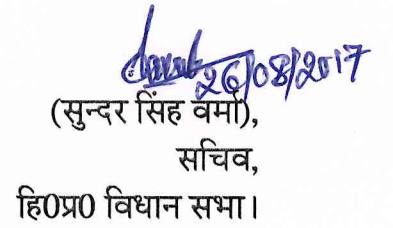 26/08/2017
(सुन्दर सिंह वर्मा),
सचिव,
हि0प्र0 विधान सभा।